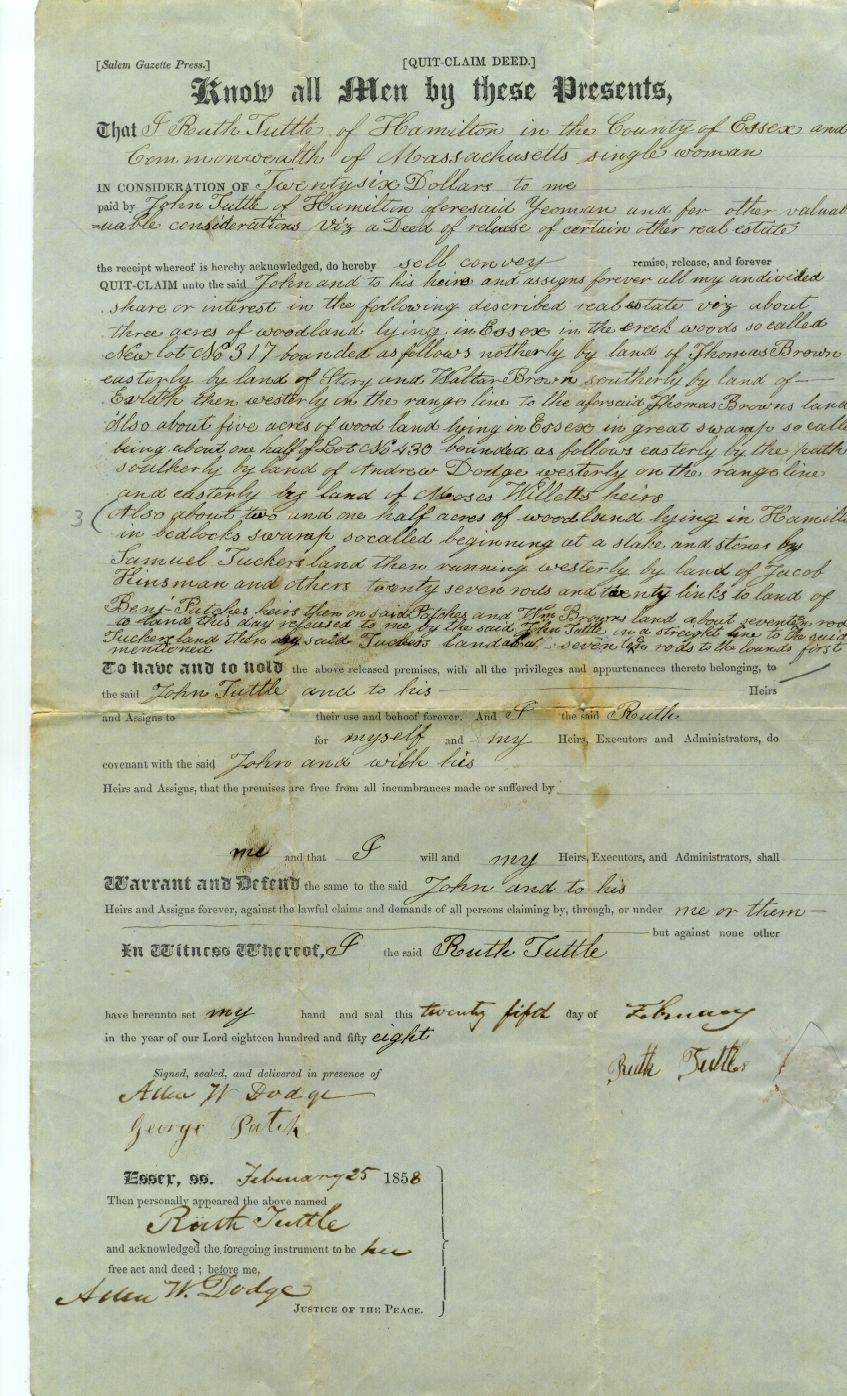 [Salem Gazette Press.] [QUIT-CLAIM DEED.]
Know all Men by these Presents,
That I Ruth Tuttle of Hamilton in the County of Essex and
Commonwealth of Massachusetts single woman
IN CONSIDERATION OF Twentysix Dollars to me
paid by John Tuttle of Hamilton aforesaid Yeoman and for other valuab
=uable considerations Viz a Deed of release of certain other real estate
the receipt whereof is hereby acknowledged, do hereby sell convey remise, release, and forever
QUIT-CLAIM unto the said John and to his heirs and assigns forever all my undivided
share or interest in the following described real estate viz about
three acres of woodland lying in Essex in the creek woods so called
New lot No 317 bounded as follows notherly by land of Thomas Brown
easterly by land of and Waltar Brown southerly by land of —
Eveleth then westerly in the range line to the aforsaid Thomas Browns land
Also about five acres of wood land lying in Essex in great swamp so calle
being about one half of Lot No 430 bounded as follows easterly by the path
southerly by land of Andrew Dodge westerly on the range line
and easterly by land of Moses Willetts heirs
3 (Also about two and one half acres of woodland lying in Hamilt
in bedlocks swamp so called beginning at a stake and stones by
Samuel Tuckers land then running westerly by land of Jacob
Kinsman and others twenty seven rods and twenty links to land of
Benj Patches heirs then on said Patches and Wm Browns land about seventeen rod
to land this day released to me by the said John Tuttle in a straight line to the said
Tuckers land then by said Tuckers land about seven rods to the bounds first
mentioned
To have and to hold the above released premises, with all the privileges and appurtenances thereto belonging, to
the said John Tuttle and to his — Heirs
and Assigns to their use and behoof forever. And I the said Ruth
for myself and my Heirs, Executors and Administrators, do
covenant with the said John and with his
Heirs and Assigns, that the premises are free from all incumbrances made or suffered by
me and that I will and my Heirs, Executors, and Administrators, shall
Warrant and Defend the same to the said John and to his
Heirs and Assigns forever, against the lawful claims and demands of all persons claiming by, through, or under me or them —
— but against none other
In Witness Whereof, I the said Ruth Tuttle
have hereunto set my hand and seal this twenty fifth day of February
in the year of our Lord eighteen hundred and fifty eight
Ruth Tuttle
Signed, sealed, and delivered in presence of
Allen W Dodge
George Patch
Essex, ss. February 25 1858
Then personally appeared the above named
Ruth Tuttle
and acknowledged the foregoing instrument to be her
free act and deed; before me,
Allen W. Dodge
JUSTICE OF THE PEACE.